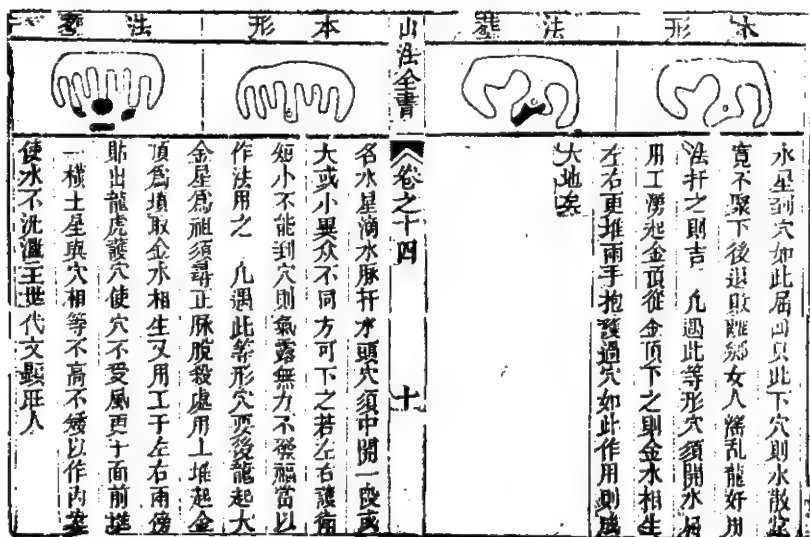 本形 葬法
水星到穴如此屈曲見此下穴則水散
竟不聚下後退敗離鄉女人淫乱龍奸用
法扞之則吉 凡遇此等形穴須開水
用工湧起金頂從金頂下之則金水相生
左右更堆兩手抱護過穴如此作用則成
大地矣
山法全書 卷之十四 十
本形 葬法
名水星滴水脉扞水頭穴須中開一段或
大或小異众不同方可下之若左右護衛
短小不能到穴則氣露無力不發福當以
作法用之 凡遇此等形穴要後龍起大
金星爲祖須尋正脉脫殺處用土堆起金
頂爲墳取金水相生又用工于左右兩傍
貼出龍虎護穴使穴不受風更于面前堆
一橫土星與穴相等不高不矮以作內案
使水不洗蕩主世代文顯旺人